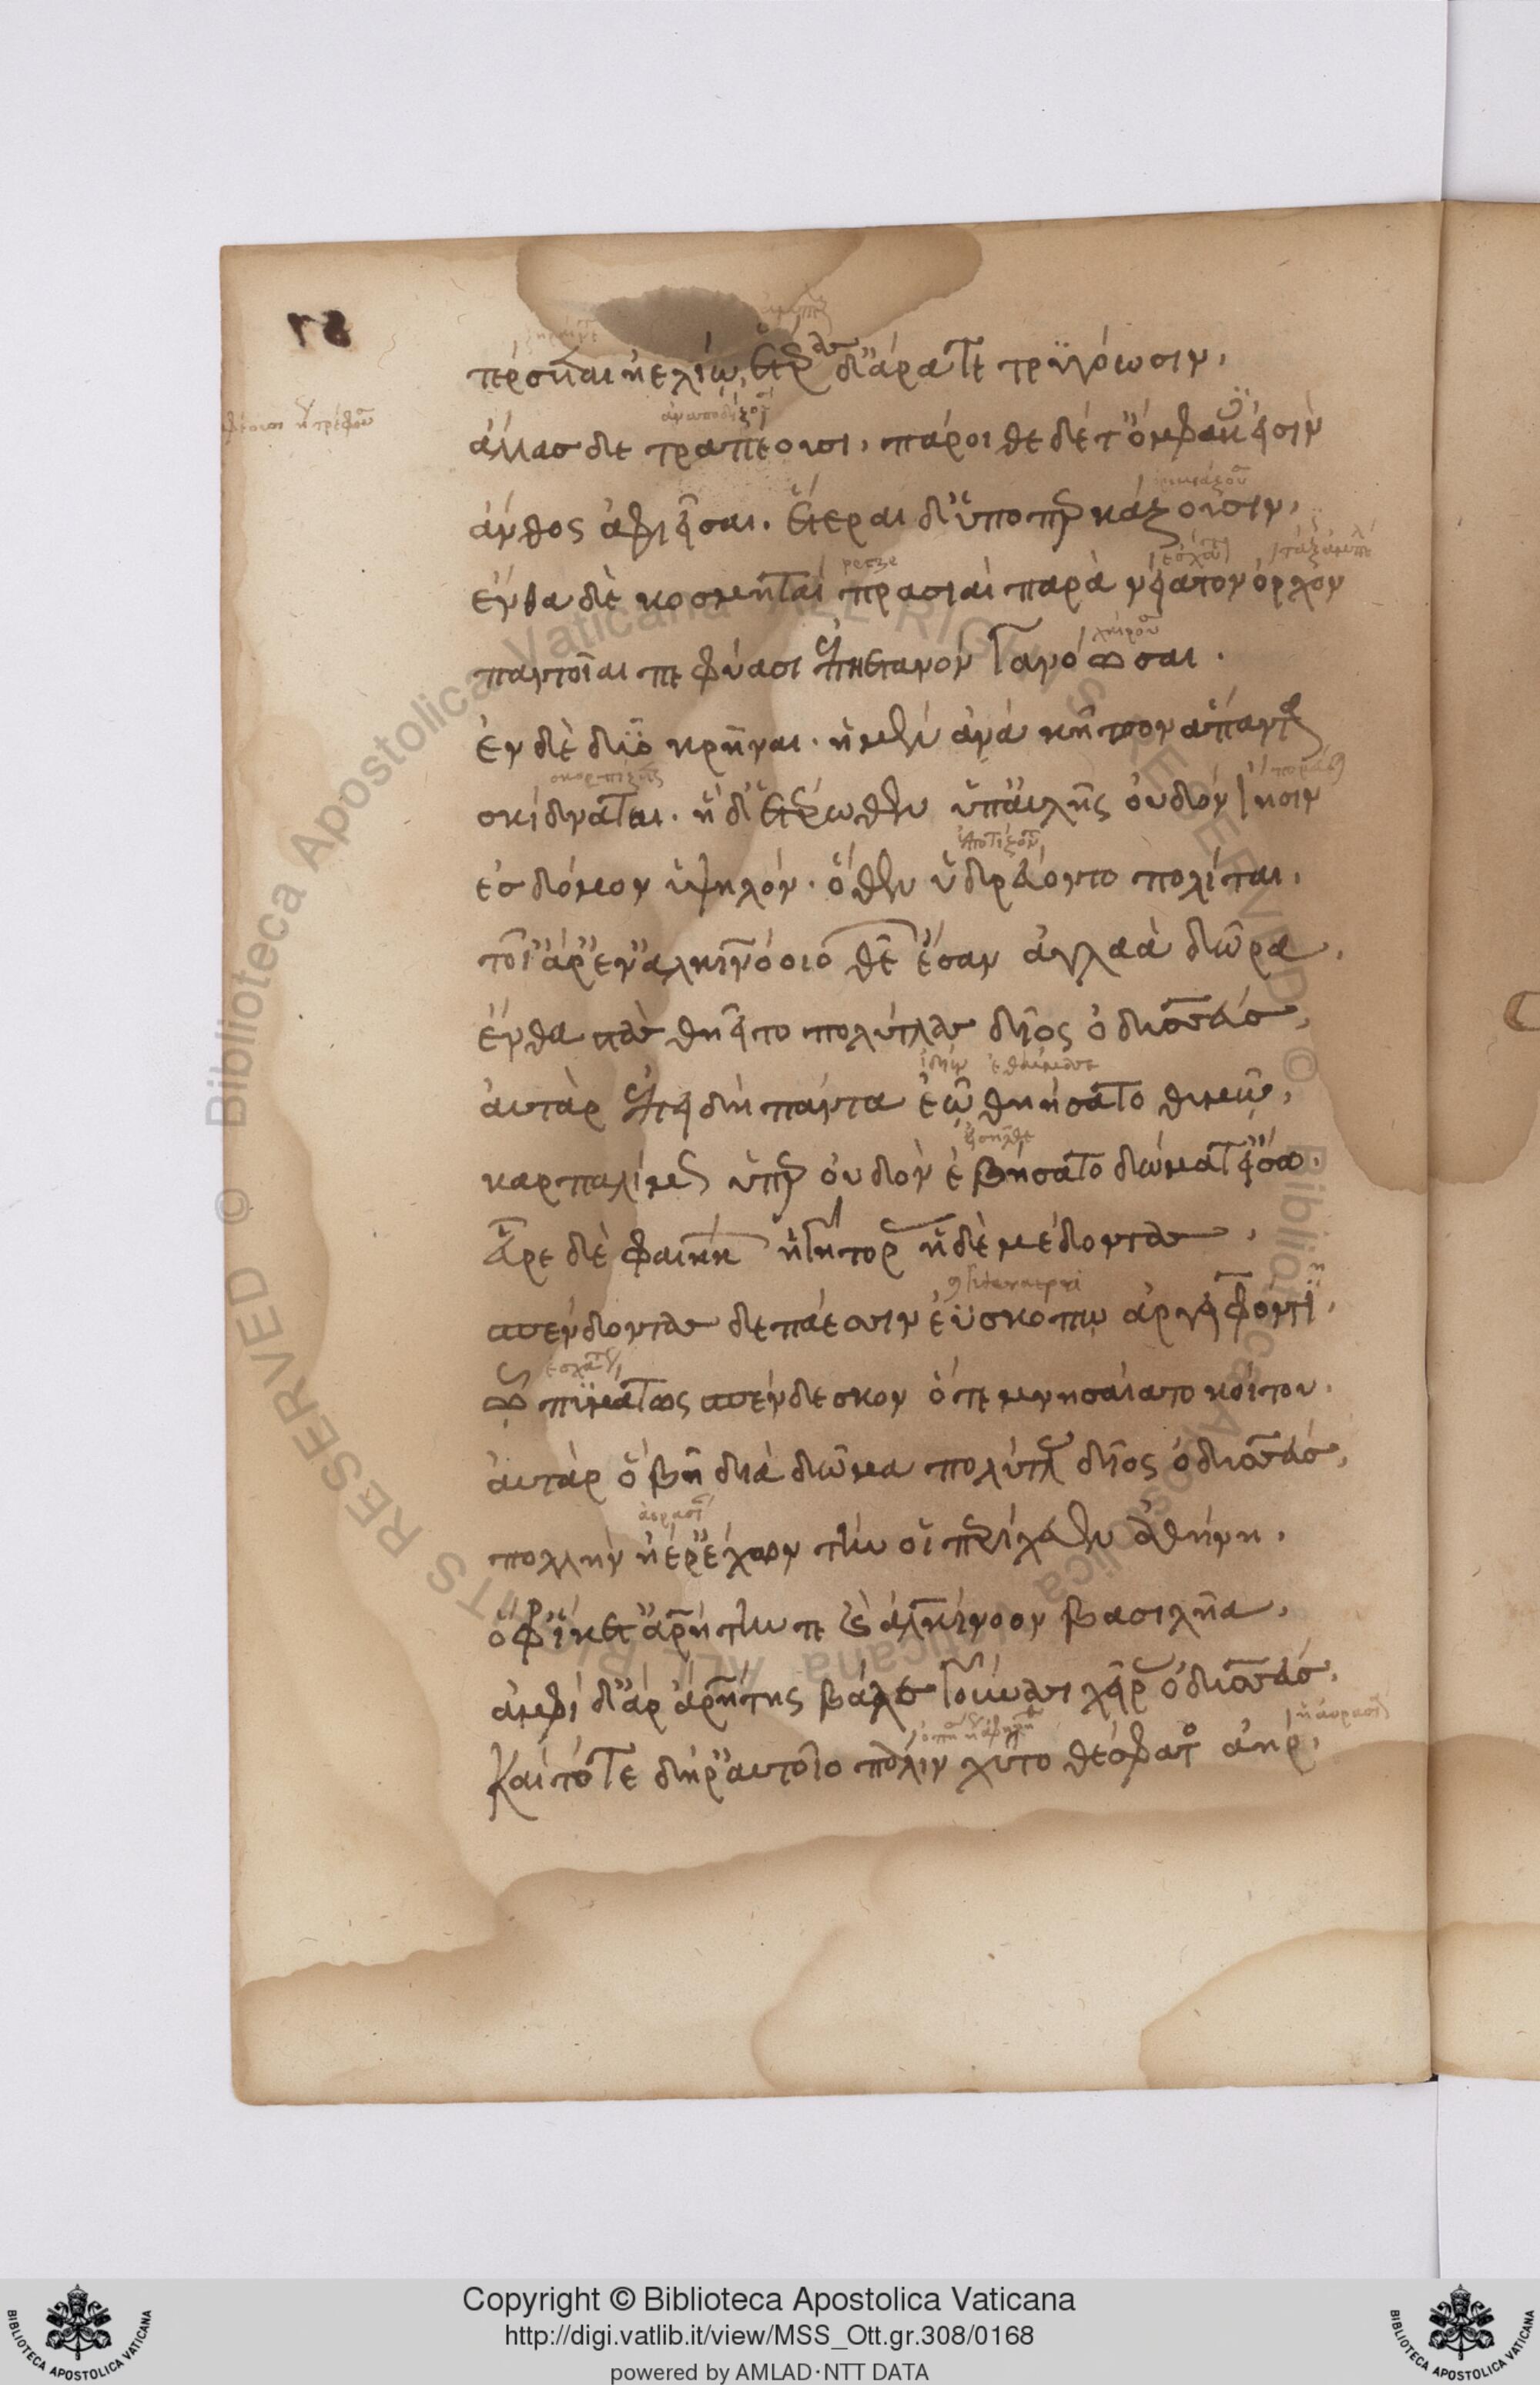 τέρσεται ἠελίω, ἑτέρας δ' ἄρα τε τρυγόωσιν,
ἄλλας δε τραπέουσι, πάροιθε δέ τ' ὄμφακές εἰσιν
ἄνθος ἀφιεῖσαι. ἕτεραι δ' ὑποπερκάζουσιν,
ἔνθα δὲ κοσμηταὶ πρασιαὶ παρὰ νείατον ὄρχον
παντοῖαι πεφύασι ἐπηετανὸν γανόωσαι.
ἐν δὲ δύο κρῆναι. ἡ μέν ἀνά κῆπον ἅπαντα
σκίδναται. ἡ δ' ἑτέρωθεν ὑπ' αὐλῆς οὐδὸν ἵησιν
ἐσ δόμον ὑψηλόν. ὅθεν ὑδρεύοντο πολίται.
τοῖ' ἄρ' ἐν ἀλκινόοιο θεῶν ἔσαν ἀγλαὰ δῶρα,
ἔνθα στὰς θηεῖτο πολύτλας δῖος ὀδυσσεύσ,
ἀυτὰρ ἐπειδὴ πάντα ἑῶ θηήσατο θυμῶ,
καρπαλίμως ὑπὲρ οὐδὸν ἐβήσατο δώματος εἴσω.
εὗρε δὲ φαιήκων ἡγήτορας ἠδὲ μέδοντας,
σπένδοντας δεπάεσσιν ἐϋσκόπω ἀργειφόντη,
ὧ πυμάτω σπένδεσκον ὅτε μνησαίατο κοίτου.
ἀυτὰρ ὁ βῆ διὰ δῶμα πολύτλας δῖος ὀδυσσεύσ,
πολλὴν ἠέρ' ἔχων τήν οἱ περίχευεν ἀθήνη,
ὄφρ' ἵκετ' ἀρήτην τε καὶ ἀλκίνοον βασιλῆα,
ἀμφὶ δ' ἄρ' ἀρήτης βάλε γούνασι χεῖρας ὀδυσσεύσ,
Καὶ τότε δή ῥ' αυτοῖο πάλιν χύτο θέσφατος ἀήρ,
Copyright © Biblioteca Apostolica Vaticana
http://digi.vatlib.it/view/MSS_Ott.gr.308/0168
powered by AMLAD·NTT DATA
BIBLIOTECA APOSTOLICA VATICANA
BIBLIOTECA APOSTOLICA VATICANA
© Biblioteca Apostolica Vaticana ALL RIGHTS RESERVED
© Biblioteca Apostolica Vaticana ALL RIGHTS RESERVED